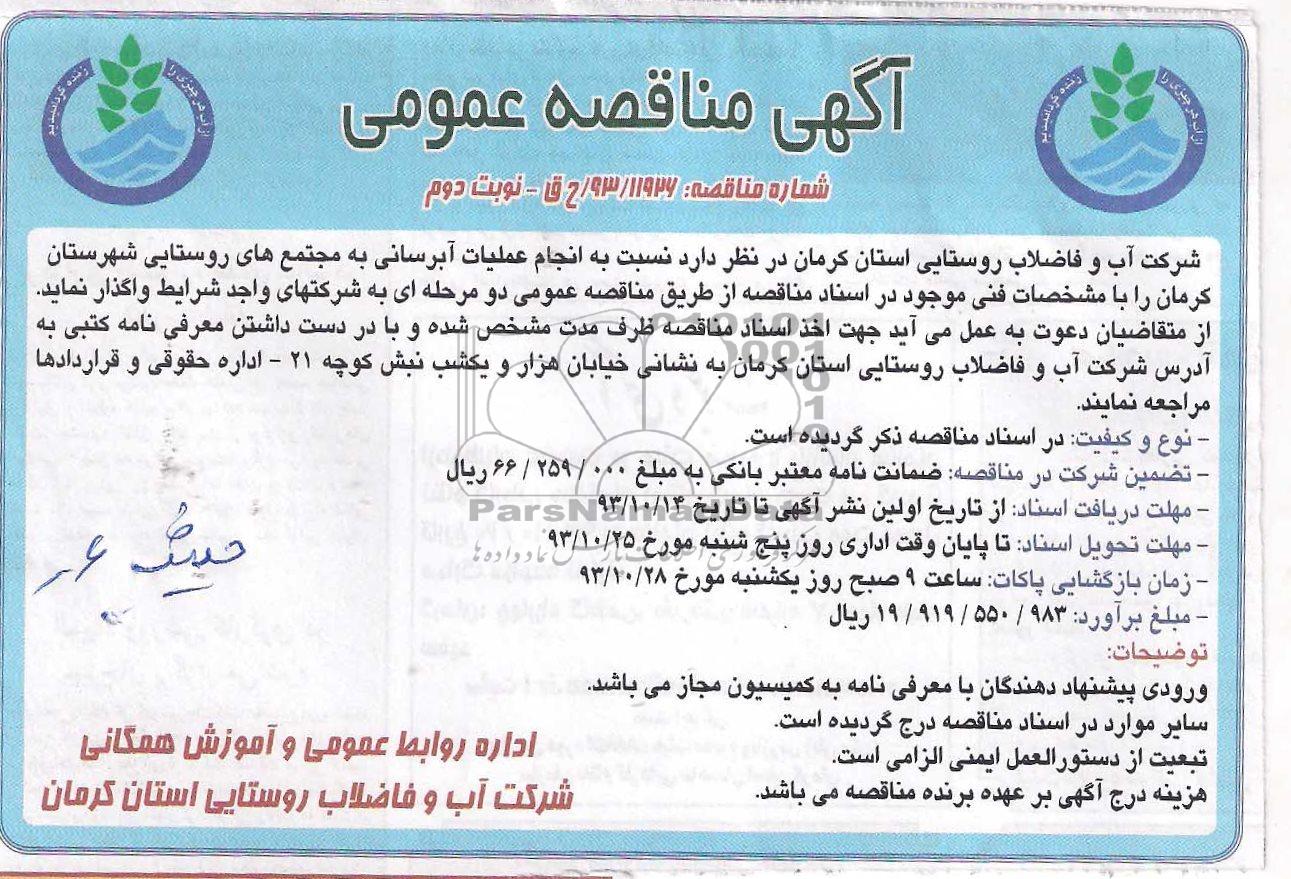 زنده گردانیدیم
از آب هر چیزی را
زنده گردانیدیم
از آب هر چیزی را
آگهی مناقصه عمومی
شماره مناقصه: ۹۳/۱۱۹۲۶/ح ق - نوبت دوم
شرکت آب و فاضلاب روستایی استان کرمان در نظر دارد نسبت به انجام عملیات آبرسانی به مجتمع های روستایی شهرستان
کرمان را با مشخصات فنی موجود در اسناد مناقصه از طریق مناقصه عمومی دو مرحله ای به شرکتهای واجد شرایط واگذار نماید.
از متقاضیان دعوت به عمل می آید جهت اخذ اسناد مناقصه ظرف مدت مشخص شده و با در دست داشتن معرفی نامه کتبی به
آدرس شرکت آب و فاضلاب روستایی استان کرمان به نشانی خیابان هزار و یکشب نبش کوچه ۲۱ - اداره حقوقی و قراردادها
مراجعه نمایند.
- نوع و کیفیت: در اسناد مناقصه ذکر گردیده است.
- تضمین شرکت در مناقصه: ضمانت نامه معتبر بانکی به مبلغ ۶۶/۲۵۹/۰۰۰ ریال
- مهلت دریافت اسناد: از تاریخ اولین نشر آگهی تا تاریخ ۹۳/۱۰/۱۴
- مهلت تحویل اسناد: تا پایان وقت اداری روز پنج شنبه مورخ ۹۳/۱۰/۲۵
- زمان بازگشایی پاکات: ساعت ۹ صبح روز یکشنبه مورخ ۹۳/۱۰/۲۸
- مبلغ برآورد: ۱۹/۹۱۹/۵۵۰/۹۸۳ ریال
توضیحات:
ورودی پیشنهاد دهندگان با معرفی نامه به کمیسیون مجاز می باشد.
سایر موارد در اسناد مناقصه درج گردیده است.
تبعیت از دستورالعمل ایمنی الزامی است.
هزینه درج آگهی بر عهده برنده مناقصه می باشد.
اداره روابط عمومی و آموزش همگانی
شرکت آب و فاضلاب روستایی استان کرمان
ParsNamadData